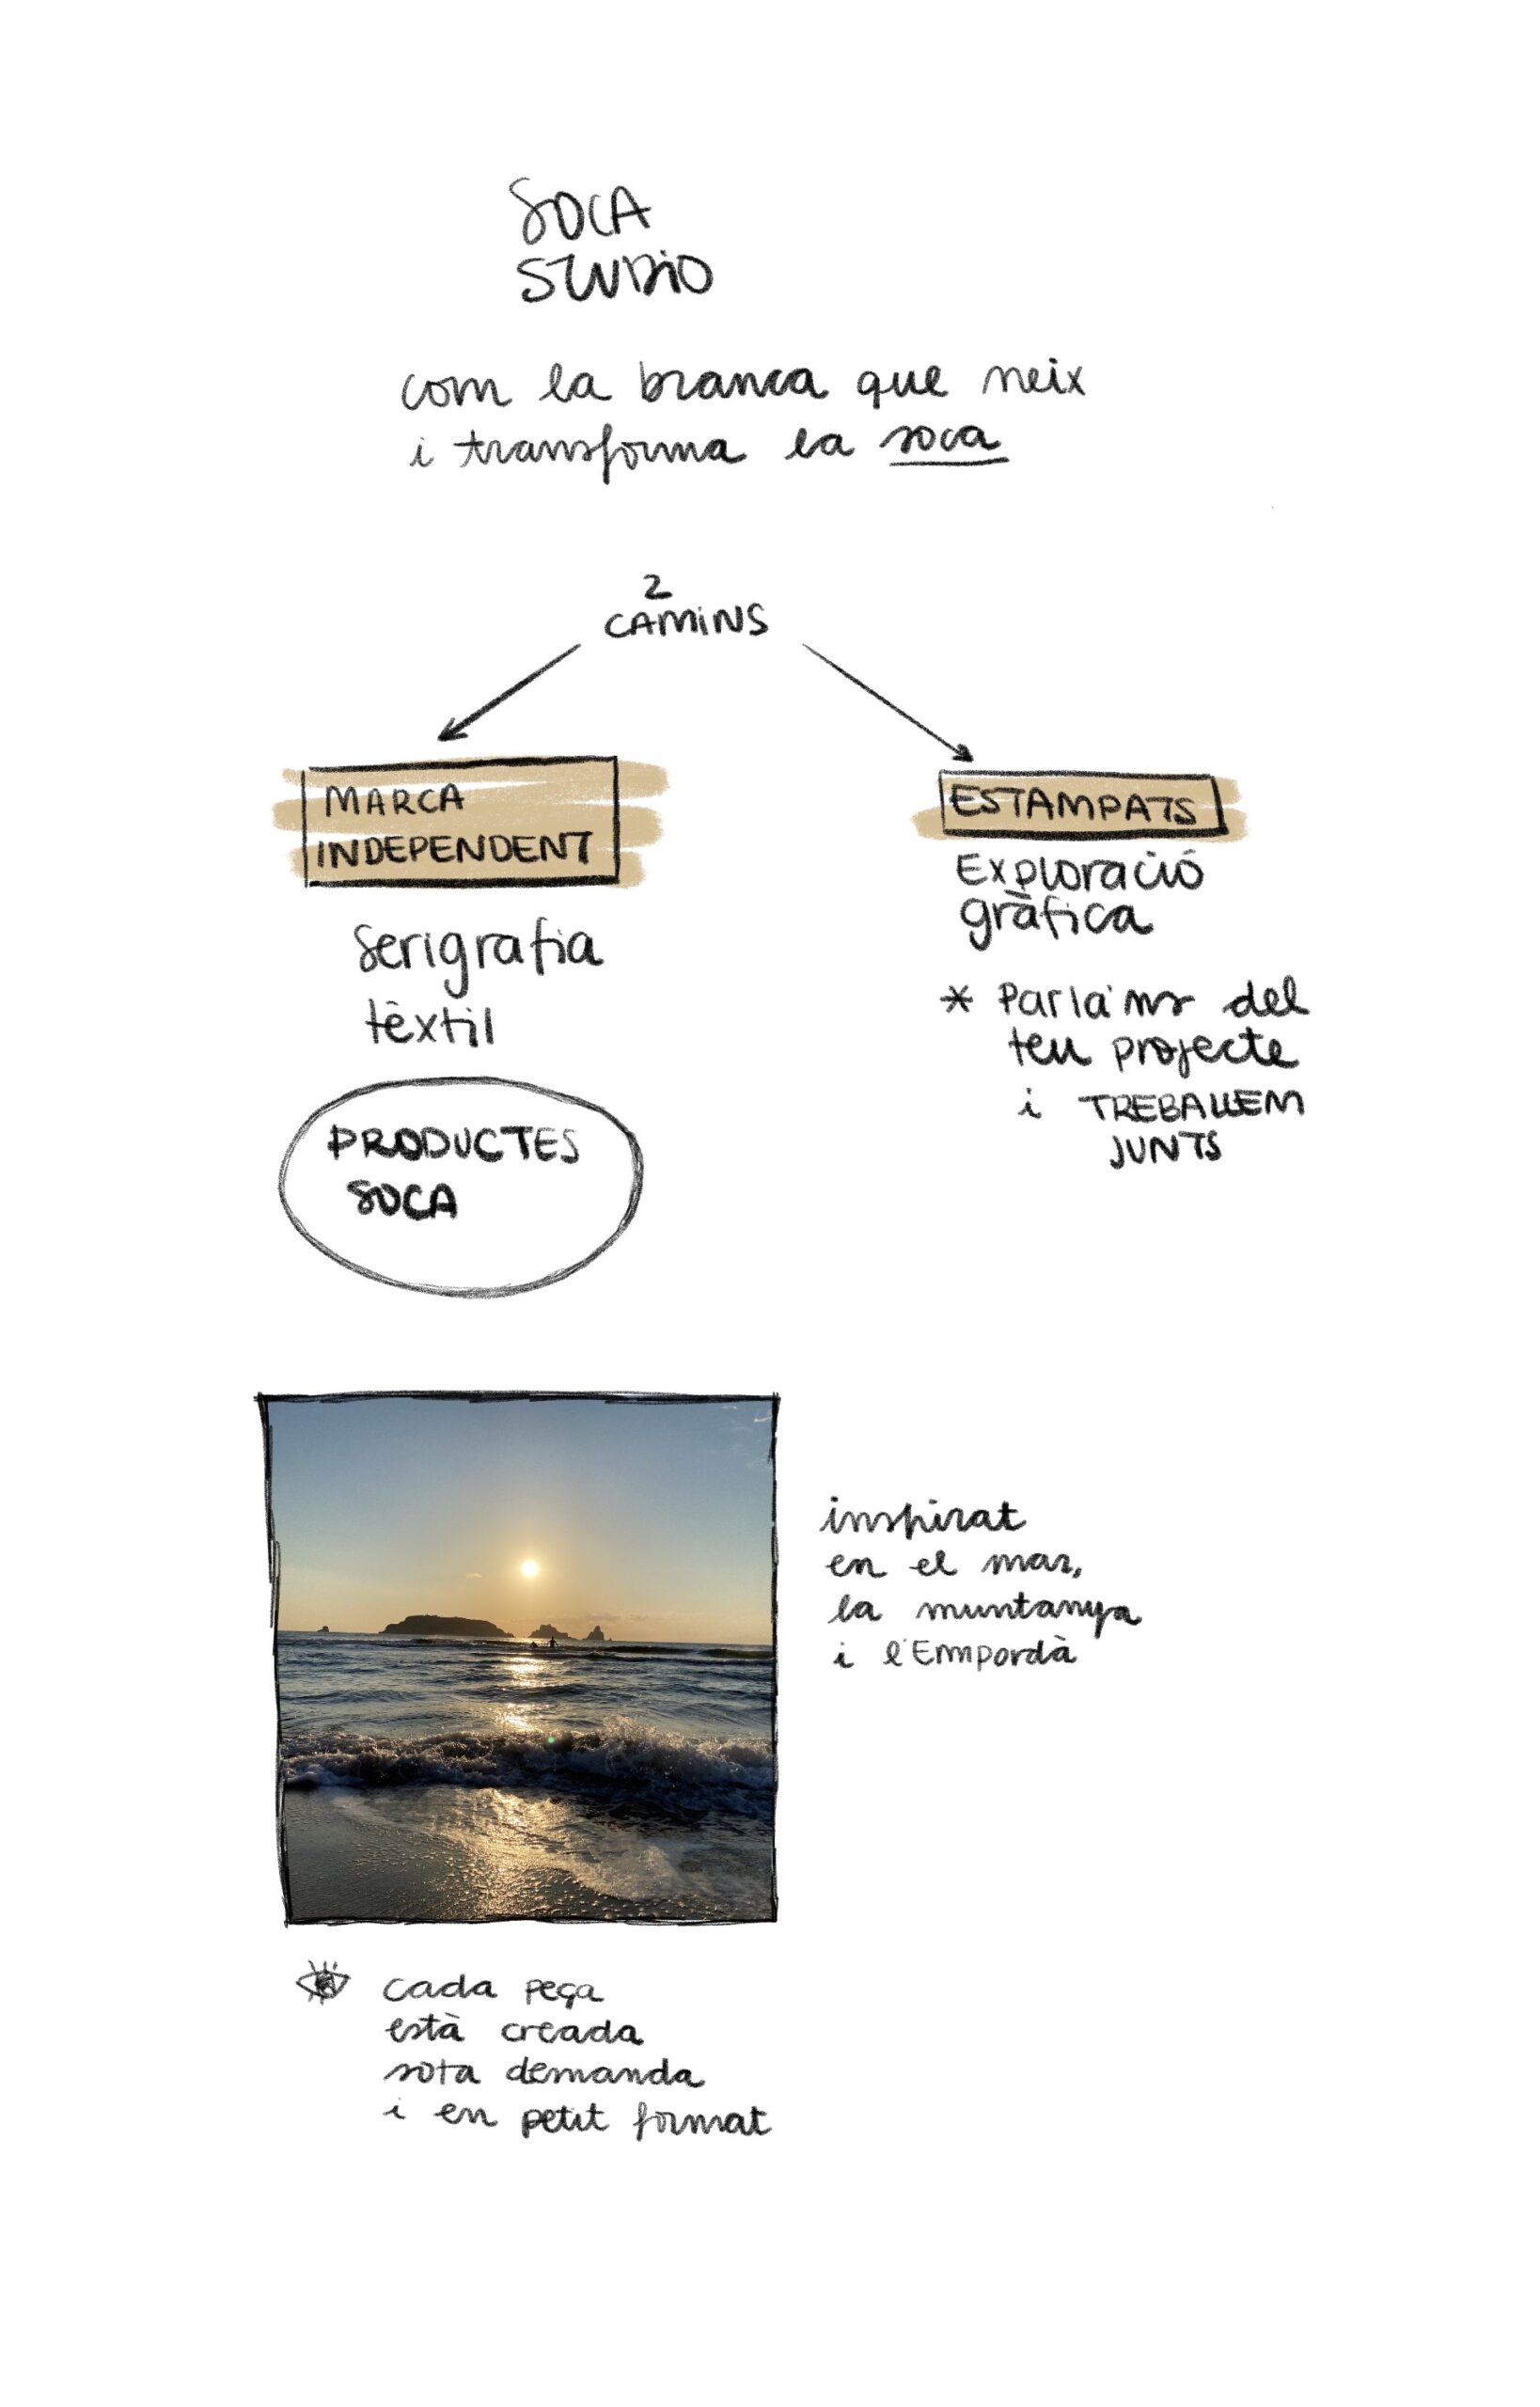 SOCA
STUDIO
com la branca que neix
i transforma la soca
2
CAMINS
MARCA
INDEPENDENT
Serigrafia
tèxtil
PRODUCTES
SOCA
ESTAMPATS
Exploració
gràfica
* Parla'ns del
teu projecte
i TREBALLEM
JUNTS
inspirat
en el mar,
la muntanya
i l'Empordà
cada peça
està creada
sota demanda
i en petit format